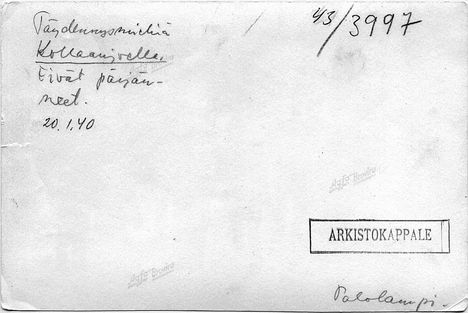 43/3997
Täydennysmiehiä
Kollaanjoella.
Eivät pärjän-
neet.
20.1.40
Agfa Brovira
Agfa Brovira
Agfa Brovira
ARKISTOKAPPALE
Palolampi.